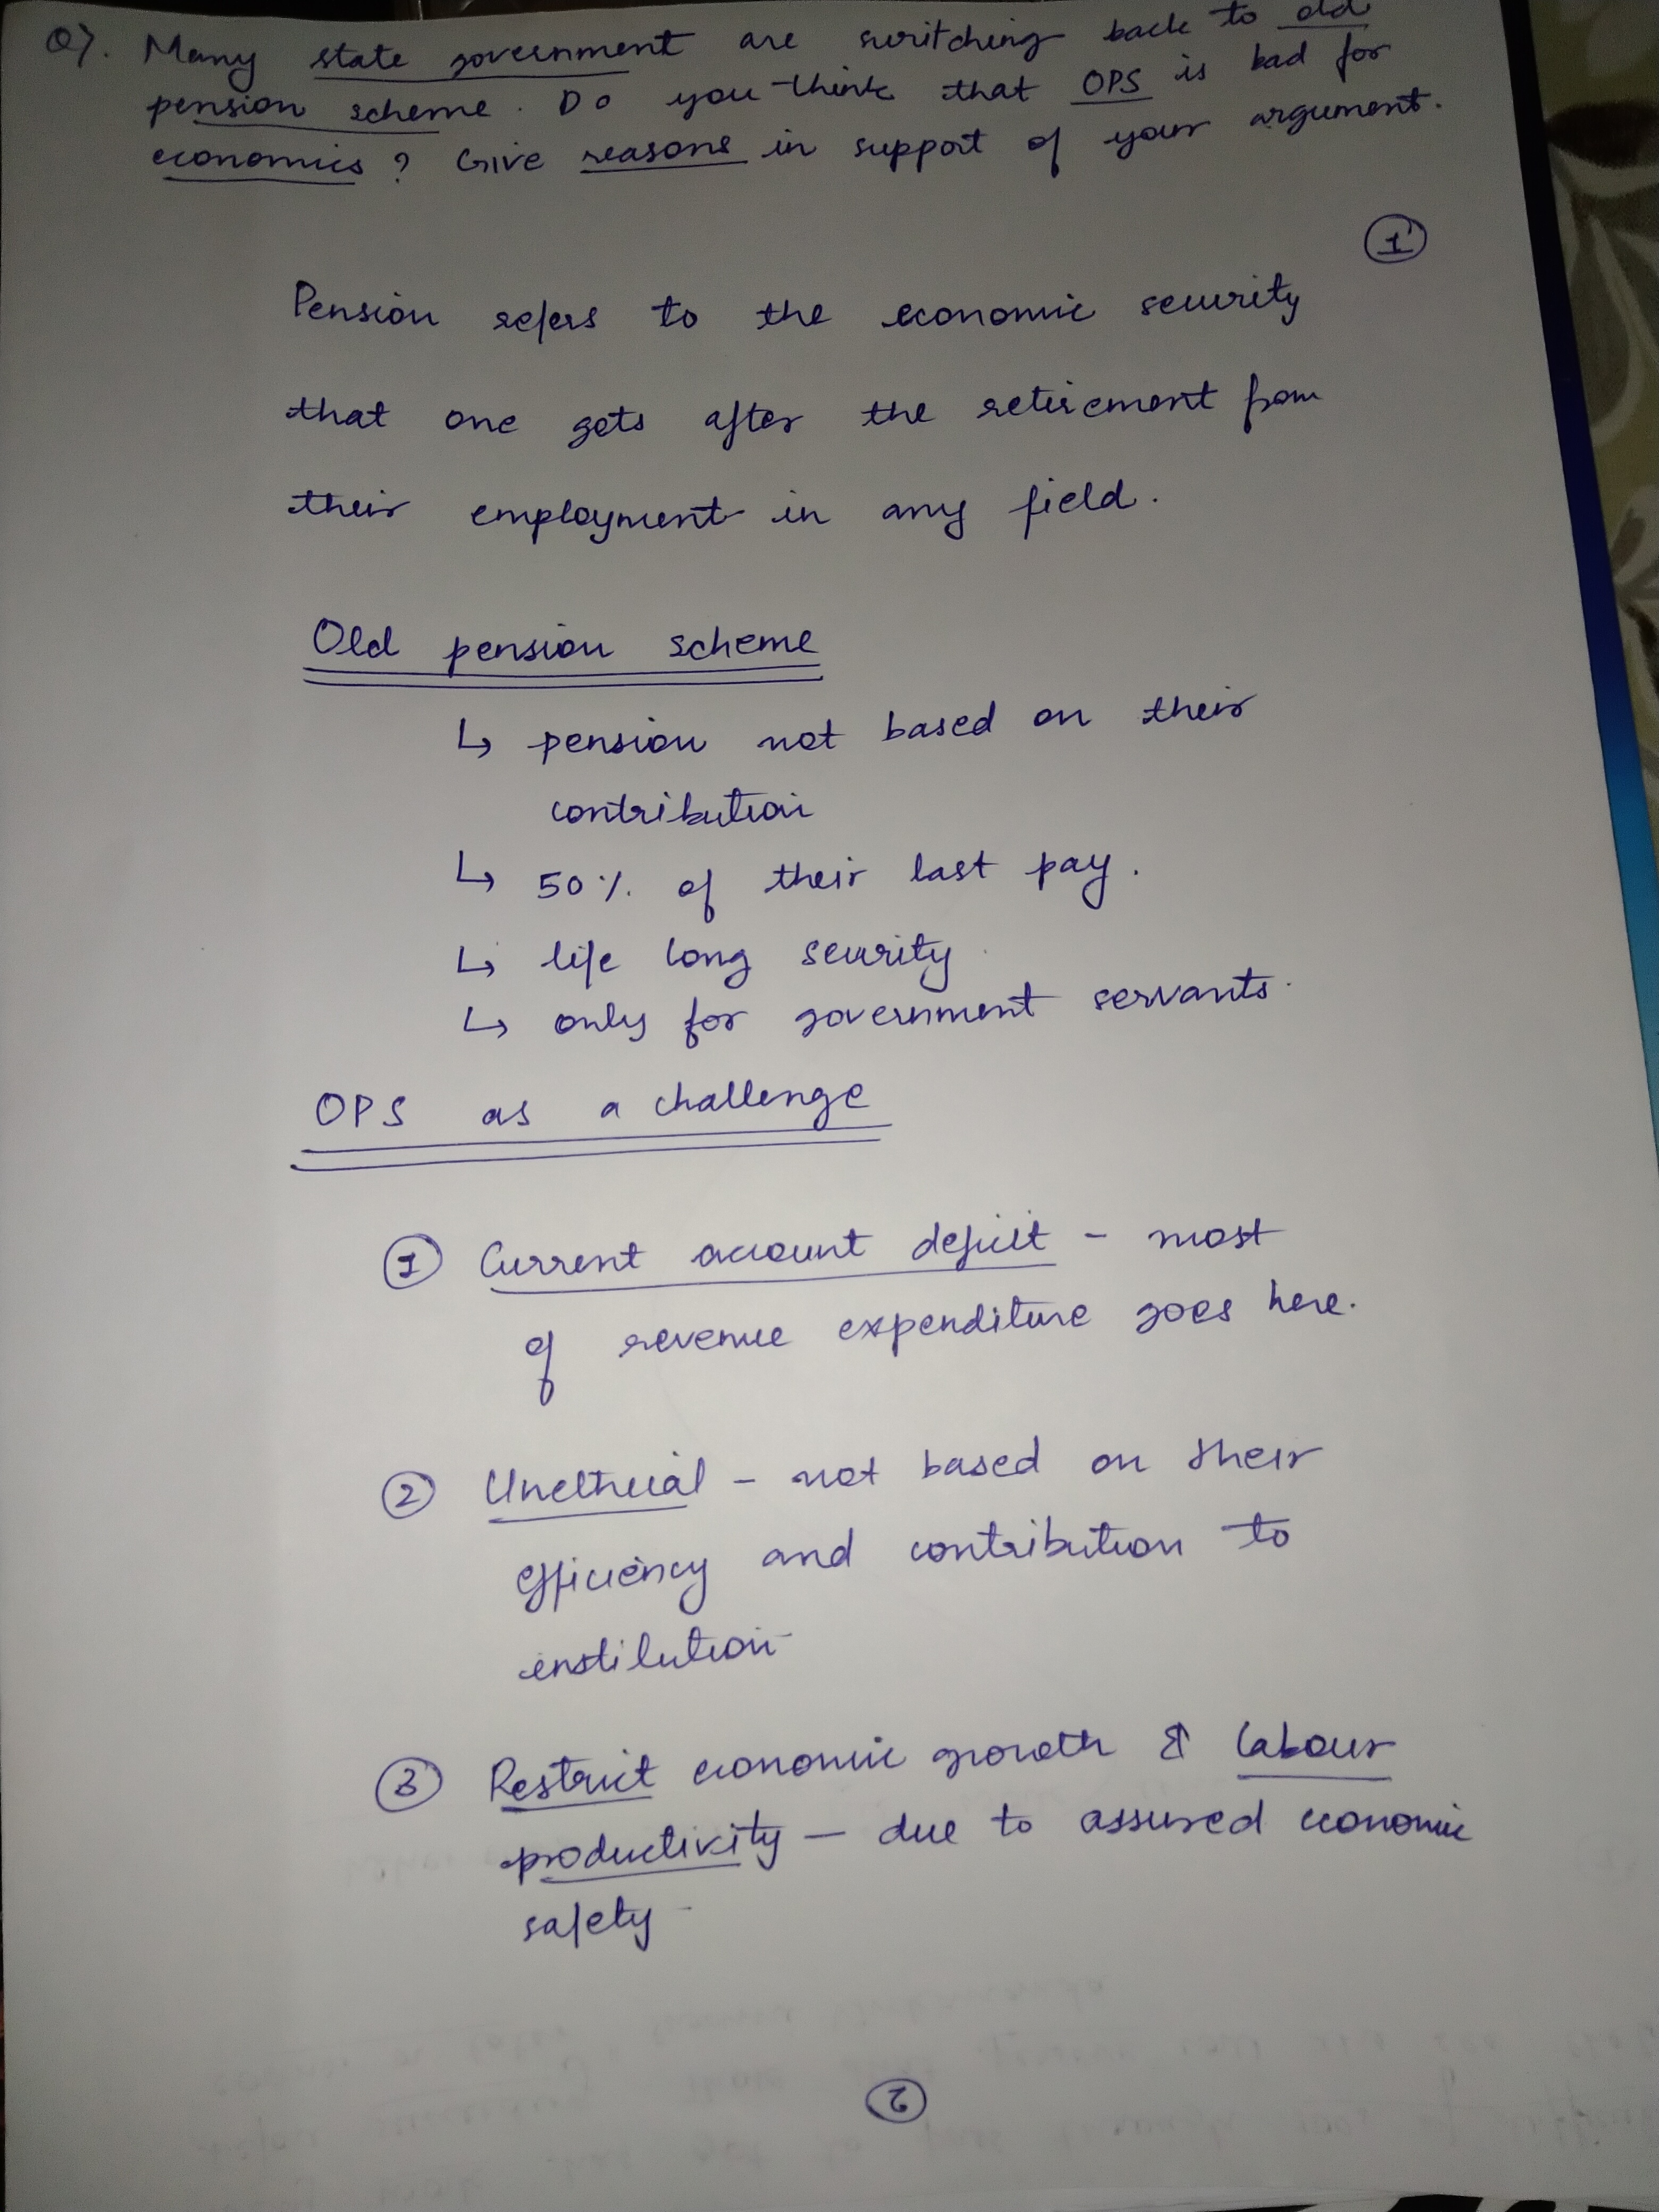 Q7. Many state government are switching back to old
pension scheme. Do you think that OPS is bad for
economics? Give reasons in support of your argument.
1
Pension refers to the economic security
that one gets after the retirement from
their employment in any field.
Old pension scheme
↳ pension not based on their
contribution
↳ 50% of their last pay.
↳ life long security
↳ only for government servants.
OPS as a challenge
1 Current account deficit - most
of revenue expenditure goes here.
2 Unethical - not based on their
efficiency and contribution to
institution
3 Restrict economic growth & labour
productivity - due to assured economic
safety
2